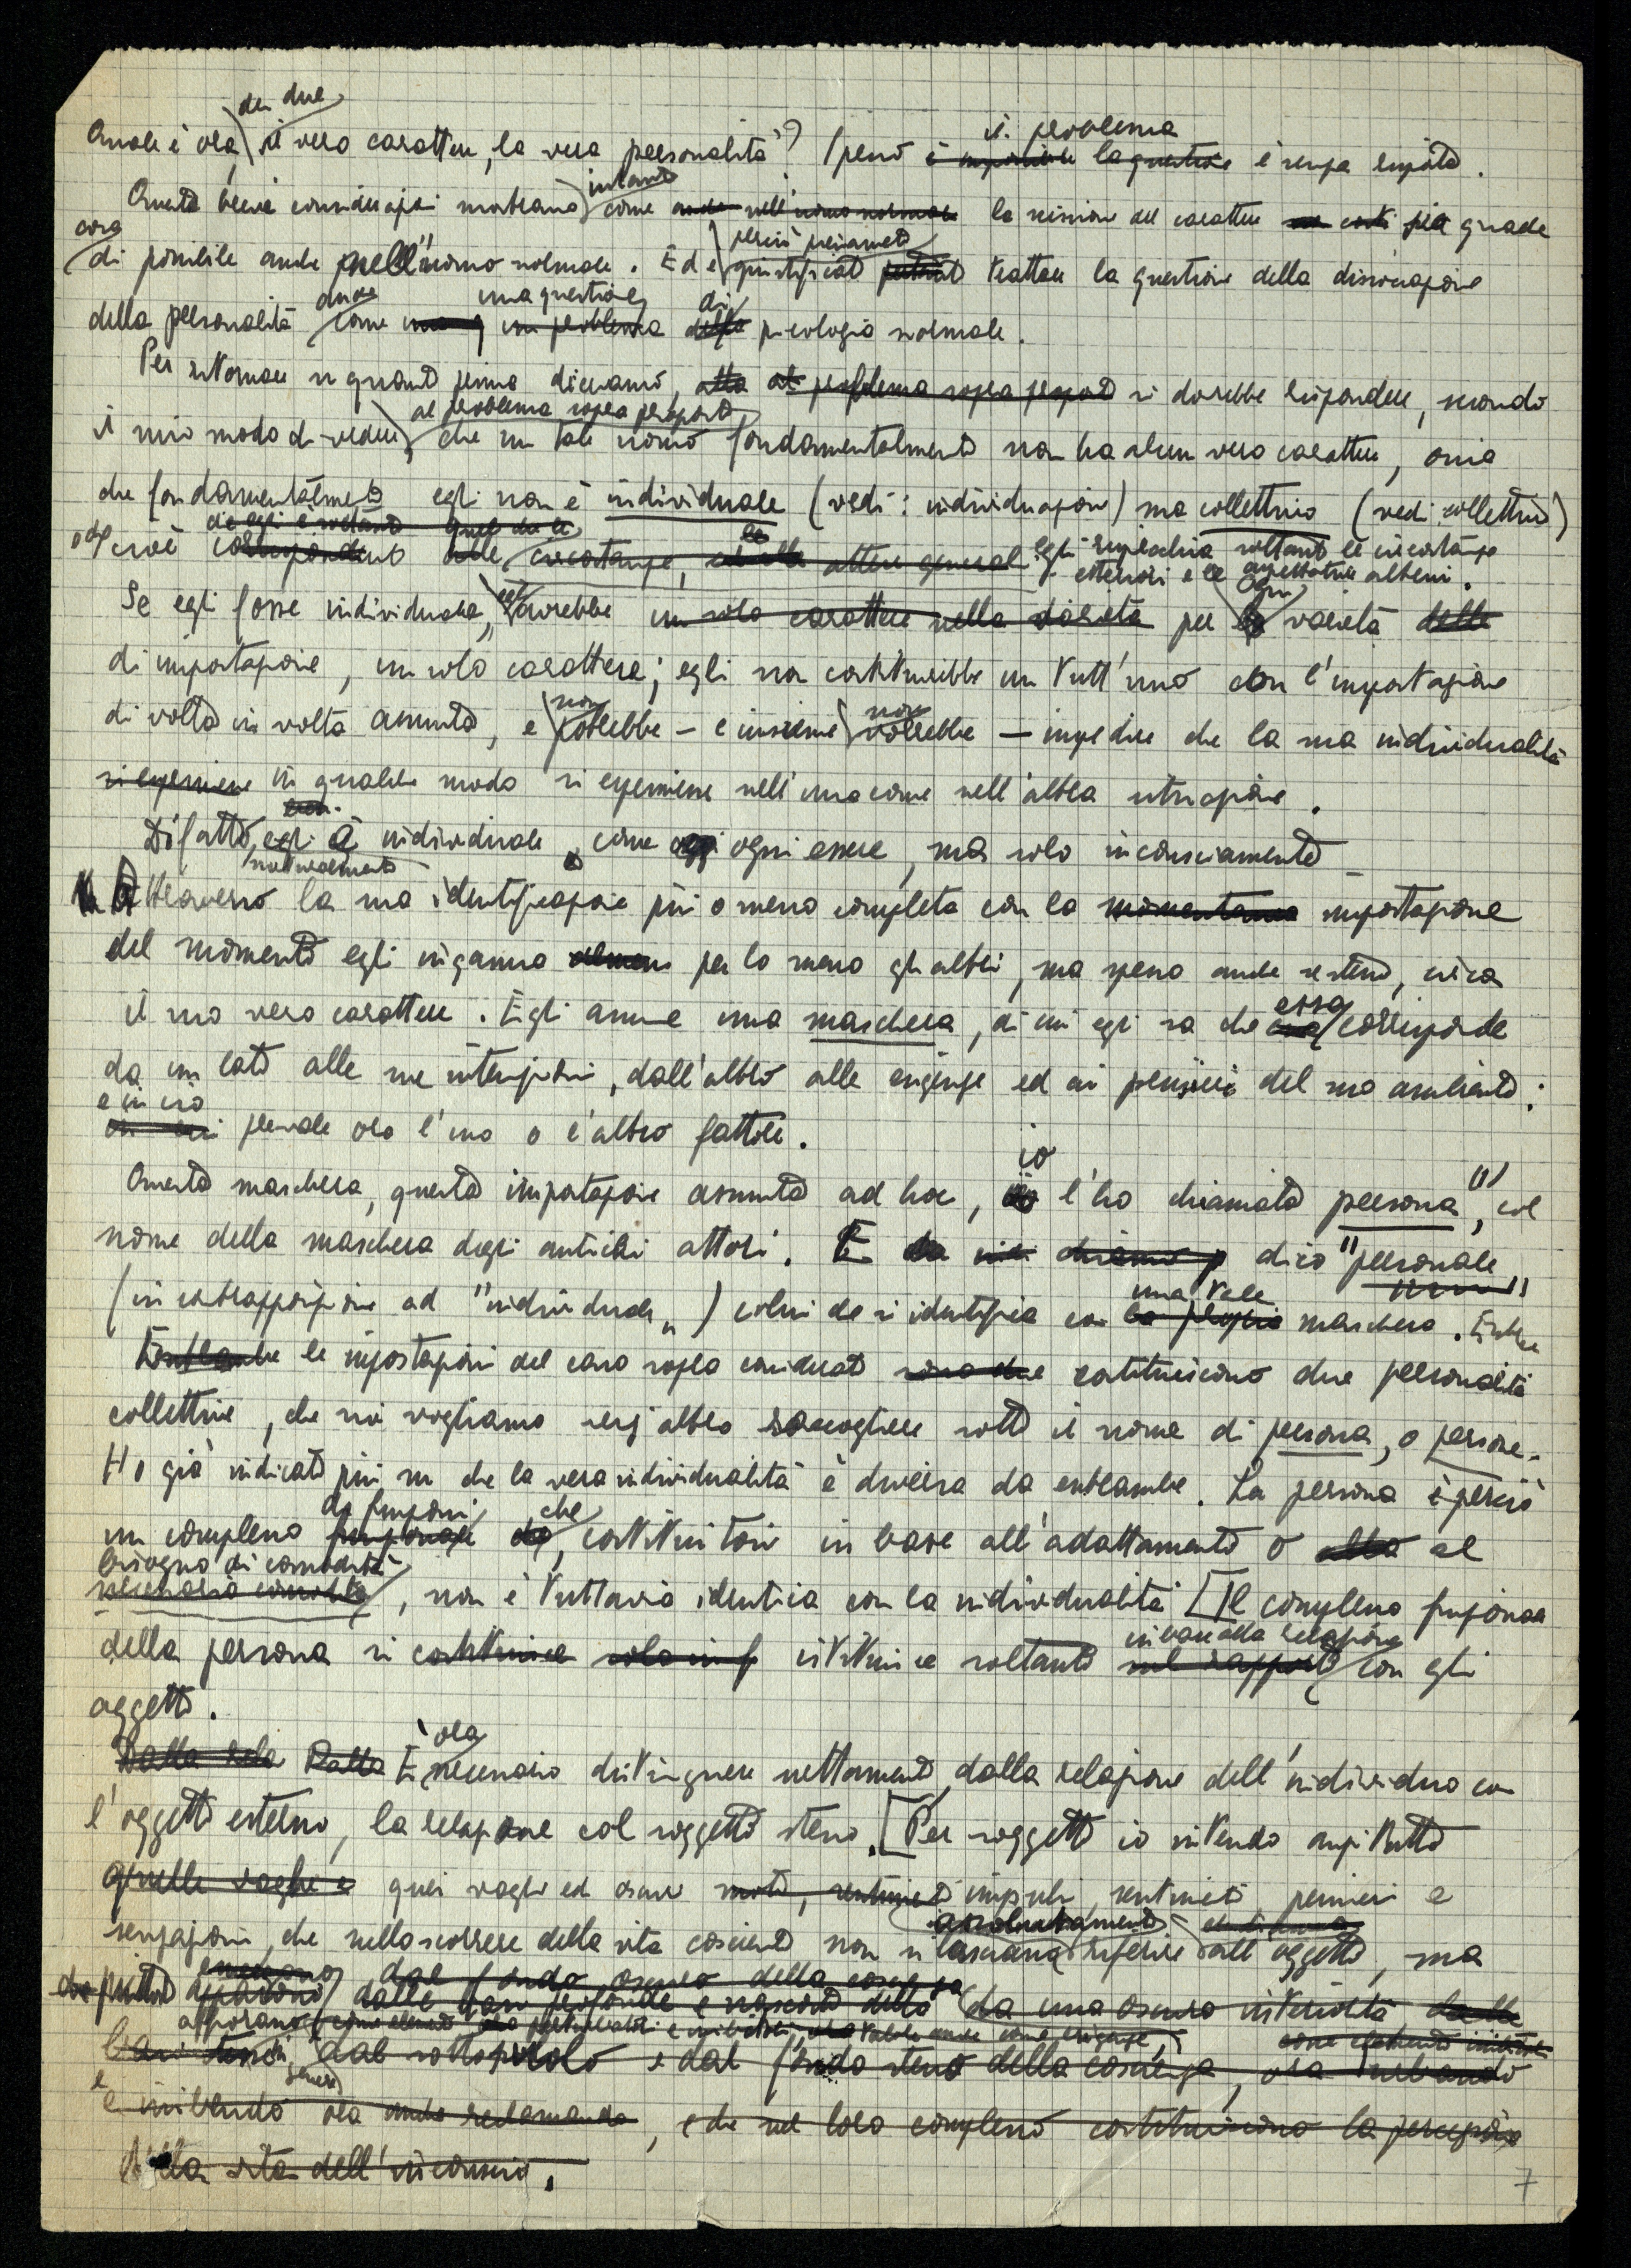 dei due
Quale è ora, il vero carattere, la vera personalità? Spesso è impossibile la questione è senza risposta.
il problema
Queste brevi considerazioni mostrano come anche nell'uomo normale la scissione del carattere sia quale
intanto
cosa
di possibile anche nell'uomo normale. Ed è giustificato pertanto trattare la questione della dissociazione
perciò pienamente
della personalità come un problema della psicologia normale.
anche una questione di
Per ritornare a quanto prima dicevamo, alla al problema sopra proposto si dovrebbe rispondere, secondo
il mio modo di vedere, che un tale uomo fondamentalmente non ha alcun vero carattere, ossia
al problema sopra proposto
che fondamentalmente egli non è individuale (vedi: individuazione) ma collettivo (vedi collettivo)
che egli è soltanto quel che le
cioè corrispondente alle circostanze, attese generali egli rispecchia soltanto le circostanze
esteriori e le aspettative altrui.
Se egli fosse individuale, avrebbe un solo carattere nella varietà per la varietà delle
egli ogni
di impostazione, un solo carattere; egli non costituirebbe un tutt'uno con l'impostazione
di volta in volta assunta, e potrebbe - e insieme vorrebbe - impedire che la sua individualità
non non
si esprimesse in qualche modo si esprimesse nell'una come nell'altra situazione.
Difatto, egli è individuale, come ogni essere, ma solo inconsciamente
naturalmente
Attraverso la sua identificazione più o meno completa con la momentanea impostazione
del momento egli inganna almeno per lo meno gli altri, ma spesso anche se stesso, circa
il suo vero carattere. Egli assume una maschera, di cui egli sa che essa corrisponde
da un lato alle sue intenzioni, dall'altro alle esigenze ed ai pensieri del suo ambiente;
e in ciò
prevale ora l'uno o l'altro fattore.
io
Questa maschera, questa impostazione assunta ad hoc, l'ho chiamata "persona", col
nome della maschera degli antichi attori. E chiamo p dico "personale"
(in contrapposizione ad "individuale") colui che si identifica con la propria maschera. Entrambe
una tale
Entrambe le impostazioni del caso sopra considerato sono due costituiscono due personalità
collettive, che noi vogliamo senz'altro raccogliere sotto il nome di persona, o persone.
Ho già indicato più su che la vera individualità è diversa da entrambe. La persona è perciò
di funzioni che
un complesso funzionale costituitosi in base all'adattamento o alla al
bisogno di comodità
necessaria comodità, non è tuttavia identica con la individualità [Il complesso funzionale
della persona si costituisce solo in f istituisce soltanto sul rapporto con gli
in base alla relazione
oggetti.
Dalla rela Dalla È necessario distinguere nettamente dalla relazione dell'individuo con
ora
l'oggetto esterno, la relazione col soggetto stesso. [Per soggetto io intendo anzitutto
quelle vaghe e quei vaghi ed oscuri moti, sentimenti impulsi, sentimenti, pensieri e
sensazioni, che nello scorrere della vita cosciente non si lasciano riferire all'oggetto, ma
assolutamente
emergono dal fondo oscuro della coscienza
che piuttosto appaiono dalle basi profonde e nascoste della da una oscura interiorità dalle
dal sottosuolo e dal fondo stesso della coscienza, ora turbando
e inibendo ora anche reclamando, e che nel loro complesso costituiscono la percezione
della vita dell'inconscio.
7